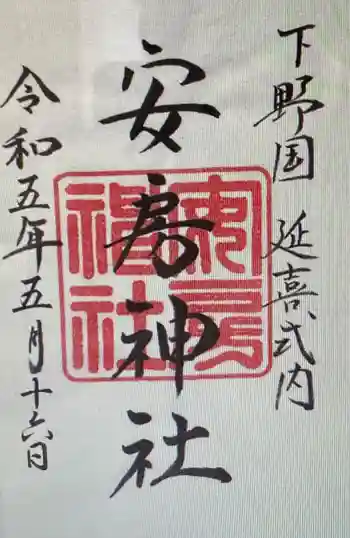 下野国 延喜式内
安房神社
安房神社
令和五年五月十六日